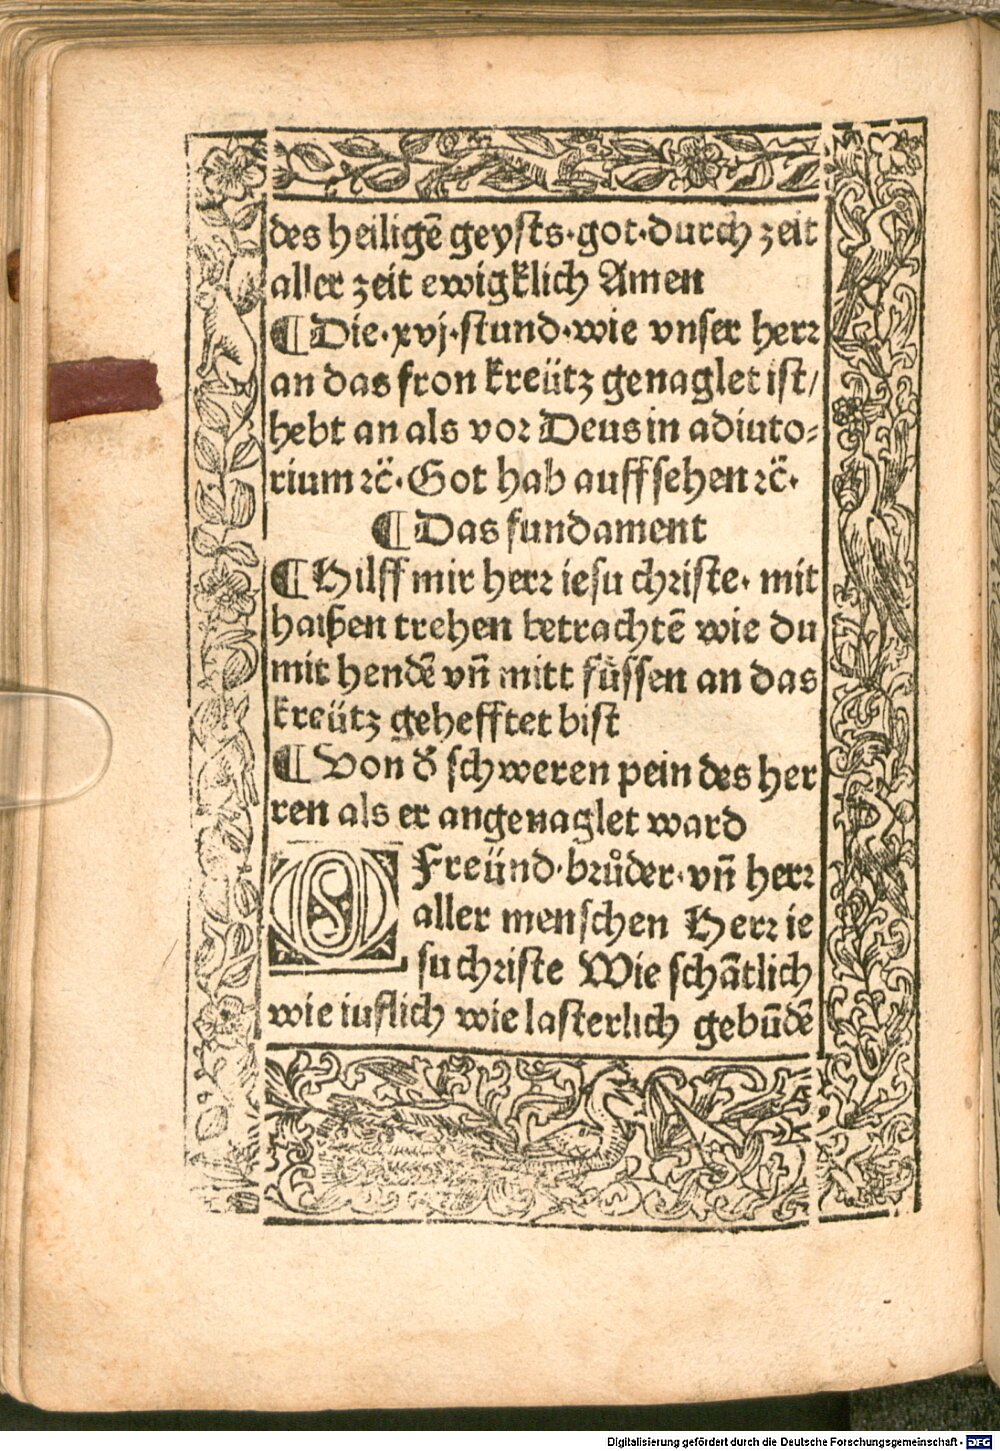 des heiligẽ geysts·got·durch zeit
aller zeit ewigklich Amen
¶Die·xvj·stund·wie vnser herr
an das fron kreütz genaglet ist/
hebt an als vor Deus in adiuto⸗
rium ⁊c̈·Got hab auff sehen ⁊c̈·
¶Das fundament
¶Hilff mir herr iesu christe· mit
haißen trehen betrachtẽ wie du
mit hendẽ vñ mitt füssen an das
kreütz gehefftet bist
¶Von d̕ schweren pein des her
ren als er angenaglet ward
O Freünd·brůder·vñ herr
aller menschen Herr ie
su christe Wie schãtlich
wie iuflich wie lasterlich gebũdẽ
Digitalisierung gefördert durch die Deutsche Forschungsgemeinschaft - DFG